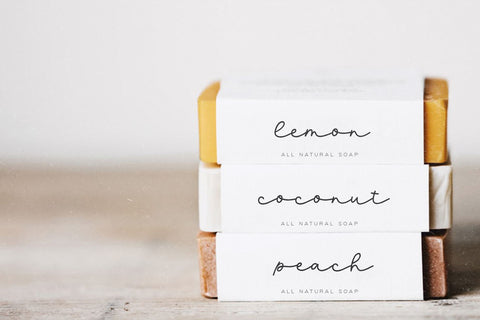 lemon
ALL NATURAL SOAP
coconut
ALL NATURAL SOAP
peach
ALL NATURAL SOAP